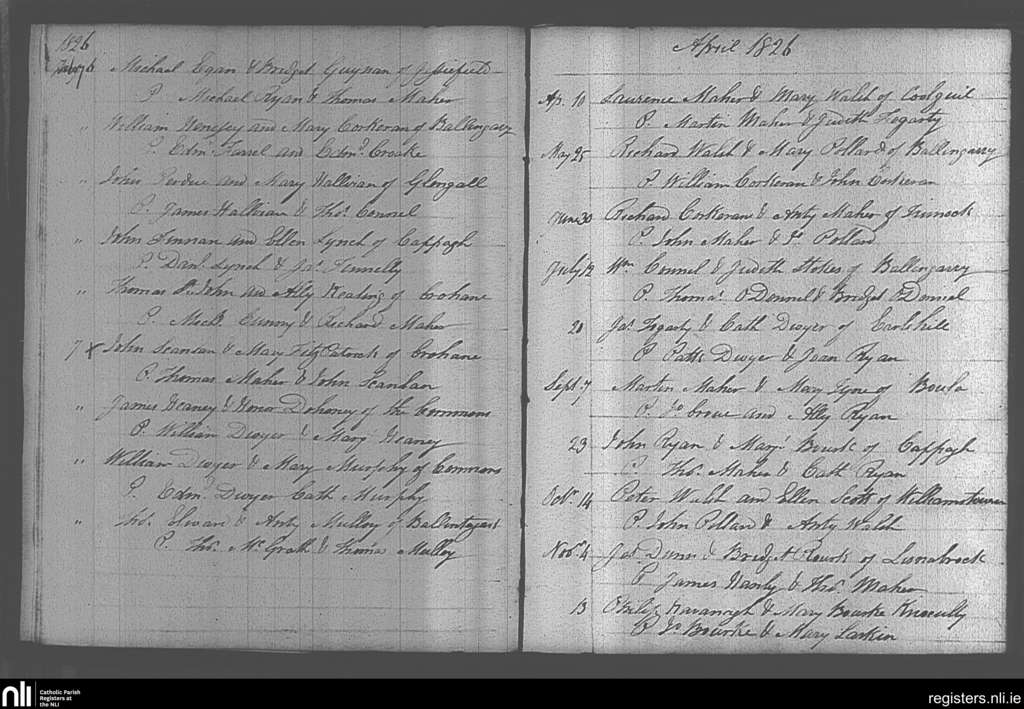 1826
Feb 7 6 Michael Egan & Bridget Guynan of Jessiefield
P. Michael Ryan & Thomas Maher
" William Henesey and Mary Corkeran of Ballingary
P. Edmd. Farrel and Edmd. Croake
" John Perdue and Mary Hallinan of Glengall
P. James Hallinan & Thos. Connel
" John Finnan and Ellen Lynch of Cappagh
P. Danl. Lynch & Jas. Finnelly
" Thomas St. John and Ally Keating of Crohane
P. Michl. & Richard Maher
7 x John Scanlan & Mary Fitz Patrick of Crohane
P. Thomas Maher & John Scanlan
" James Heaney & Honor Dohoney of the Commons
P. William Dwyer & Mary Heaney
" William Dwyer & Mary Murphy of Commons
P. Edmd. Dwyer Cath Murphy
" Thos. Elwan & Anty Mulloy of
P. Thos. McGrath & Thomas Mulloy
April 1826
Ap. 10 Laurence Maher & Mary Walsh of Coolquil
P. Martin Maher & Judith Fogarty
May 25 Richard Walsh & Mary Pollard of Ballingarry
P. William Corkeran & John Corkeran
June 30 Richard Corkeran & Anty Maher of
P. John Maher & Jo. Pollard
July 19 Wm. Connel & Judith Stokes of Ballingarry
P. Thomas O Donnel & Bridget O Donnel
20 Jas. Fogarty & Cath Dwyer of Earlshill
P. Patk Dwyer & Joan Ryan
Sept. 7 Martin Maher & Mary Tyne of
P. Jo. Crowe and Ally Ryan
23 John Ryan & Mary Bourk of Cappagh
P. Thos. Maher & Cath Ryan
Octr. 14 Peter Walsh and Ellen Scott of Williamstown
P. John Pollard & Anty Walsh
Novr. 4 Jas. Dunn & Bridget Rourk of Lisnabrock
P. James Hanly & Thos. Maher
13 Philip Kavanagh & Mary Bourke Knockully
P. Jo. Bourke & Mary Larkin
nli
Catholic Parish
Registers at
the NLI
registers.nli.ie